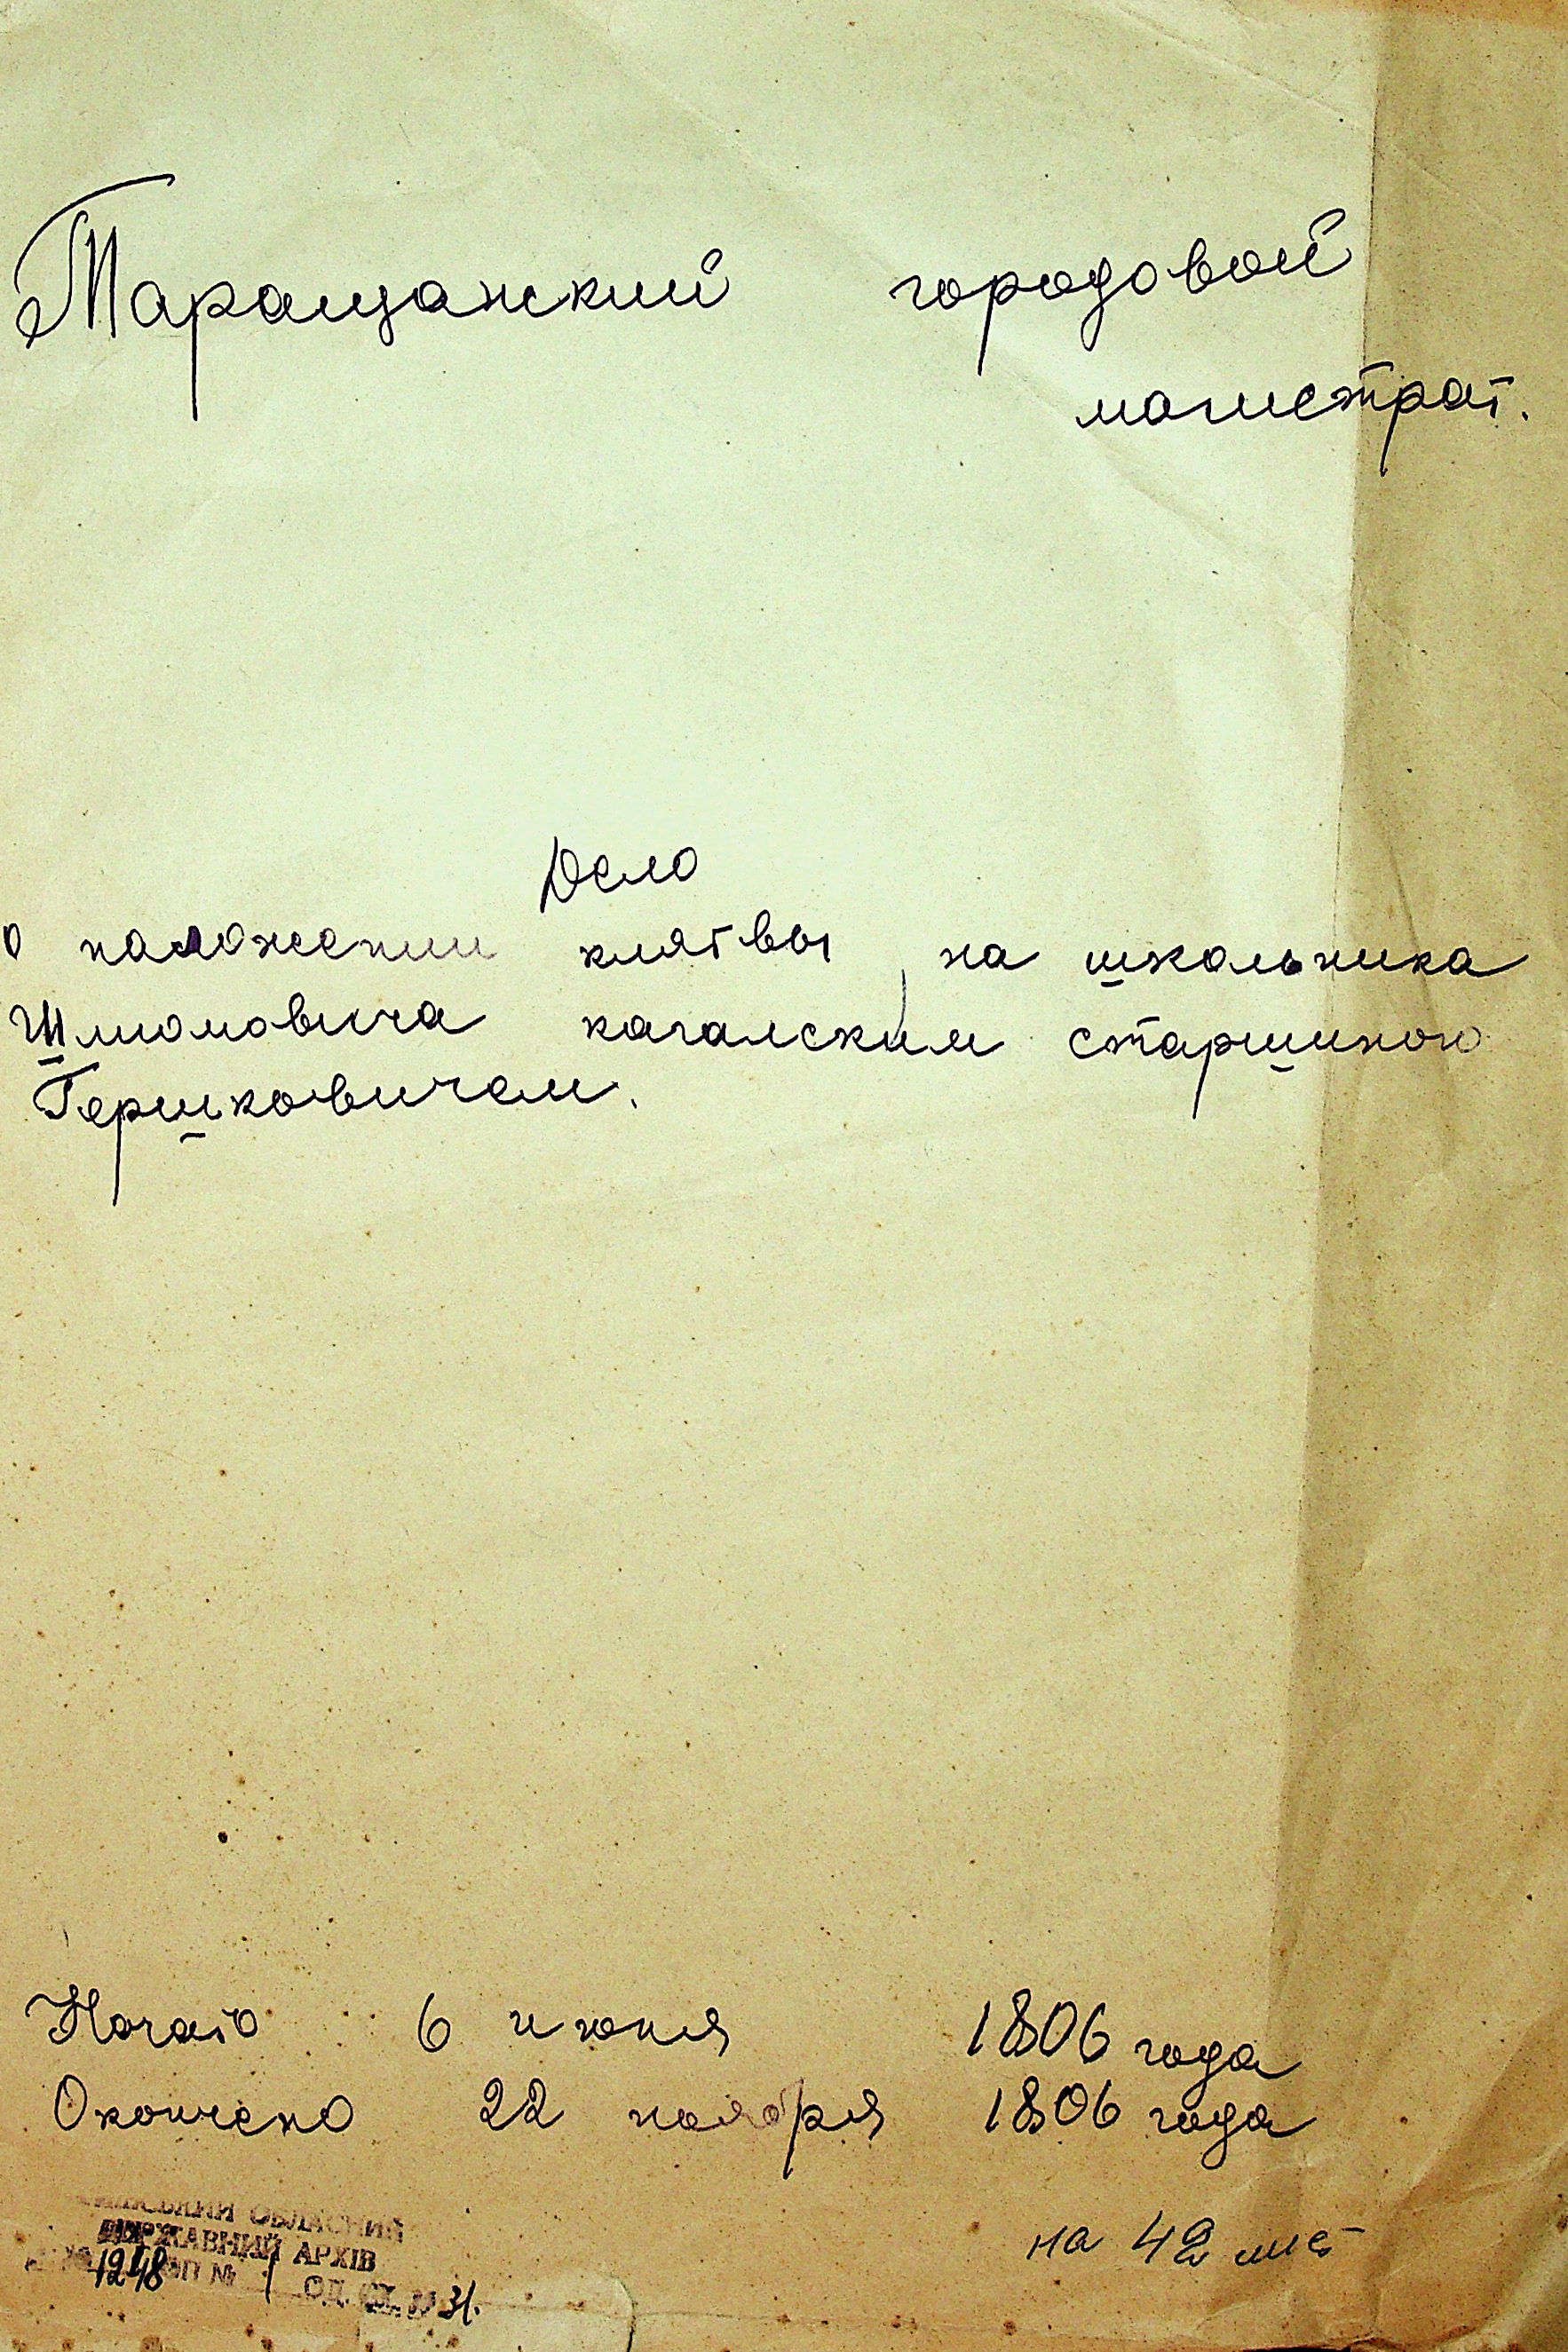 Таращанский городовой
магистрат.
Дело
о наложении клятвы на школьника
Шлиомовича кагалским старшиною
Гершковичем.
Начато 6 июня 1806 года
Окончено 22 ноября 1806 года
на 42 лист
ОБЛАСНИЙ
ДЕРЖАВНИЙ АРХІВ
1248 ОП № 1 ОД. ЗБ. № 31.